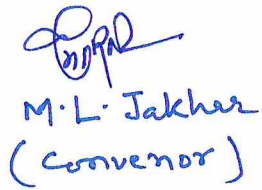 M.L. Jakhar
(Convenor)